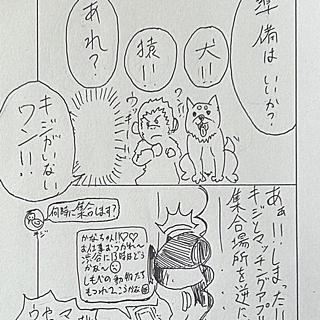 準備はいいか？
犬!!
ワン!!
猿!!
ウキー!!
あれ？
キジがいない
ワン!!
あぁ!!しまった!!
キジとマッチングアプ
集合場所を逆に
何時に集合します？
キジ
かなちゃん!!♡♡
お仕事おつかれ〜
渋谷に13時はどう
かな〜
しもべの動物たち
もつれてこうかな